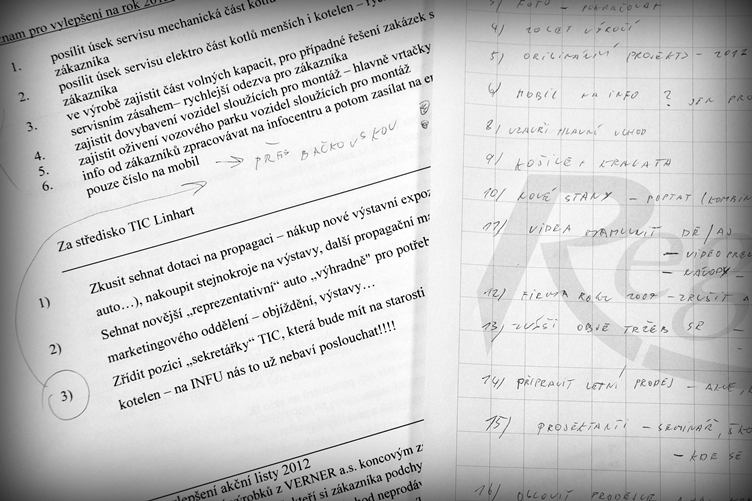 znam pro vylepšení na rok 201
1. posílit úsek servisu mechanická část kotlů
zákazníka
2. posílit úsek servisu elektro část kotlů menších i kotelen – rych
zákazníka
3. ve výrobě zajistit část volných kapacit, pro případné řešení zakázek s
servisním zásahem– rychlejší odezva pro zákazníka
4. zajistit dovybavení vozidel sloužících pro montáž – hlavně vrtačky
5. zajistit oživení vozového parku vozidel sloužících pro montáž
6. info od zákazníků zpracovávat na infocentru a potom zasílat na
pouze číslo na mobil → PŘES BAČKOVSKOU
Za středisko TIC Linhart
1) Zkusit sehnat dotaci na propagaci – nákup nové výstavní expoz
auto…), nakoupit stejnokroje na výstavy, další propagační ma
2) Sehnat novější „reprezentativní“ auto „výhradně" pro potřeb
marketingového oddělení – objíždění, výstavy…
3) Zřídit pozici „sekretářky“ TIC, která bude mít na starosti
kotelen – na INFU nás to už nebaví poslouchat!!!!
lepšení akční listy 2012
výrobků z VERNER a.s. koncovým z
kteří si zákazníka podchy
hod neprodáv
3) FOTO - POKRAČOVAT
4) 20 LET VÝROČÍ
5) ORIGINÁLNÍ PROJEKTY - 2012
6) MOBIL NA INFO ? JEN PRO
8) UZAVŘÍ HLAVNÍ VCHOD
9) KOŠILE + KRAVATA
10) NOVÉ STANY - POPTAT (KOMBIN
11) VIDEA NAMLUVIT DE/AJ
- VIDEO
- NÁVODY -
12) FIRMA ROKU 2009 - ZRUŠIT A
13) ZVÝŠÍ OBJE TRŽEB SE -
14) PŘIPRAVIT LETNÍ PRODEJ -
15) PROJEKTANTI - SEMINÁŘ, ŠKO
- KDE SE
16) OSLOVIT PRODEJCE
Reg